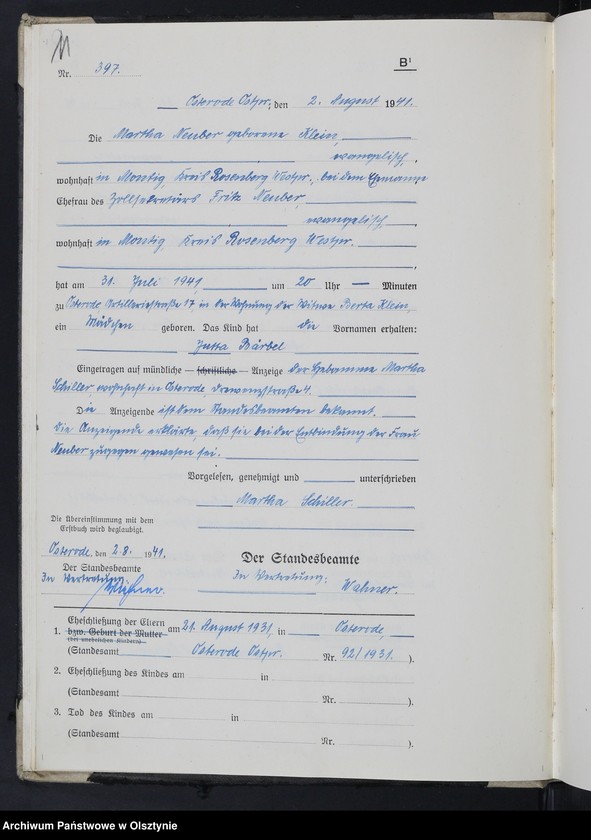 11
B¹
Nr. 397.
Osterode Ostpr., den 2. August 1941.
Die Martha Neuber geborene Klein,
evangelisch,
wohnhaft in Montig, Kreis Rosenberg Westpr., bei dem Ehemanne
Ehefrau des Zollsekretärs Fritz Neuber,
evangelisch,
wohnhaft in Montig, Kreis Rosenberg Westpr.
hat am 31. Juli 1941 um 20 Uhr — Minuten
zu Osterode Artilleriestraße 17, in der Wohnung der Witwe Berta Klein,
ein Mädchen geboren. Das Kind hat die Vornamen erhalten:
Jutta Bärbel
Eingetragen auf mündliche – schriftliche – Anzeige der Hebamme Martha
Schiller, wohnhaft in Osterode, Drewenzstraße 4.
Die Anzeigende ist dem Standesbeamten bekannt.
Die Anzeigende erklärte, daß sie bei der Entbindung der Frau
Neuber zugegen gewesen sei.
Vorgelesen, genehmigt und unterschrieben
Martha Schiller.
Die Übereinstimmung mit dem
Erstbuch wird beglaubigt.
Osterode, den 2.8. 1941.
Der Standesbeamte
In Vertretung:
Der Standesbeamte
In Vertretung:
Wahner.
1. Eheschließung der Eltern
bzw. Geburt der Mutter
(bei unehelichen Kindern)
am 21. August 1931, in Osterode,
(Standesamt Osterode Ostpr. Nr. 92/1931.).
2. Eheschließung des Kindes am in
(Standesamt Nr. ).
3. Tod des Kindes am in
(Standesamt Nr. ).
Archiwum Państwowe w Olsztynie